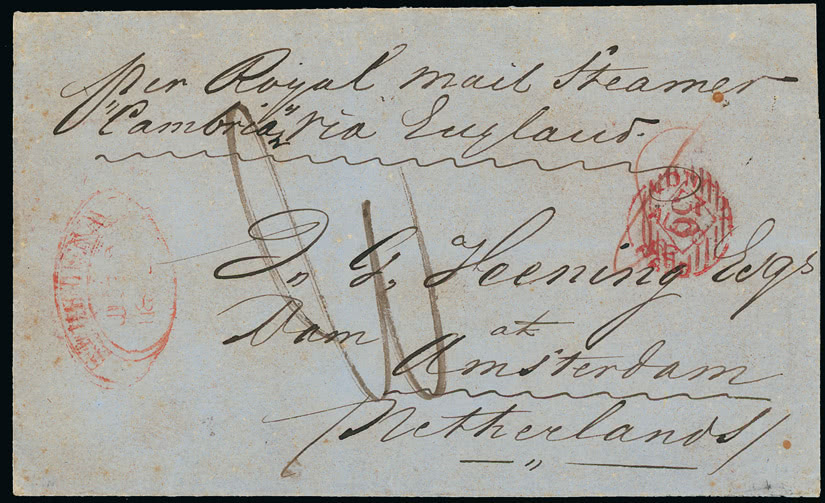 per Royal mail Steamer
"Cambria" via England.
J. G. Heening Esqs
Dam at
Amsterdam
Netherlands